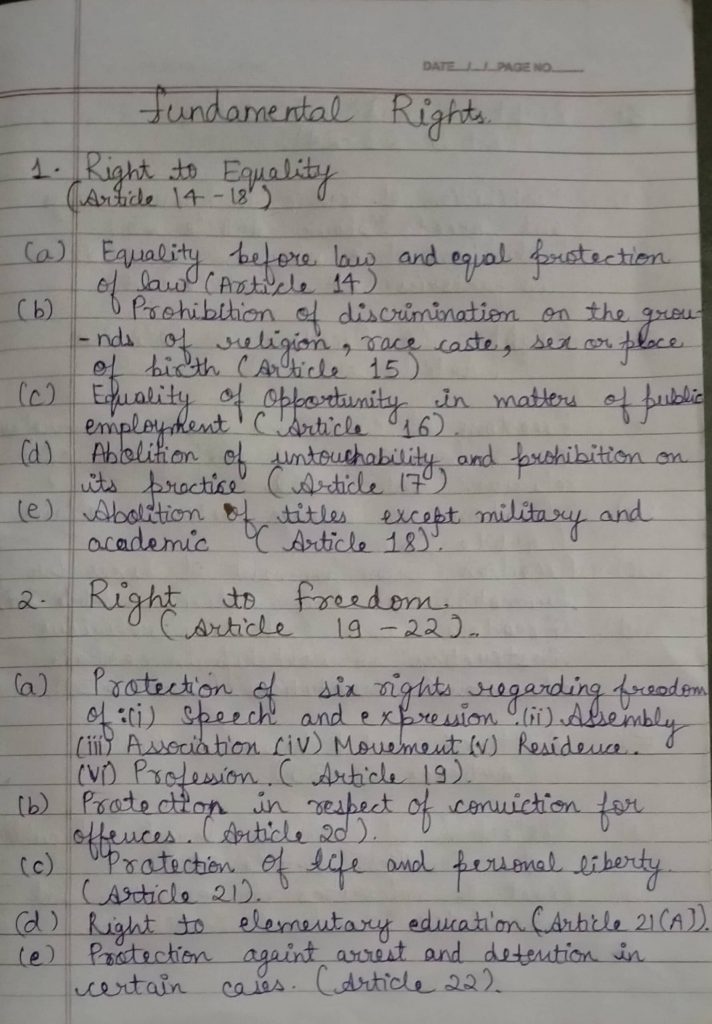 DATE / / PAGE NO.
Fundamental Rights.
1. Right to Equality
(Article 14-18)
(a) Equality before law and equal protection
of law (Article 14)
(b) Prohibition of discrimination on the grou-
-nds of religion, race caste, sex or place
of birth (Article 15)
(c) Equality of opportunity in matters of public
employment (Article 16).
(d) Abolition of untouchability and prohibition on
its practise (Article 17)
(e) Abolition of titles except military and
academic (Article 18).
2. Right to freedom.
(Article 19-22).
(a) Protection of six rights regarding freedom
of :(i) Speech and expression .(ii) Assembly
(iii) Association (iv) Movement (v) Residence.
(vi) Profession. (Article 19).
(b) Protection in respect of conviction for
offences. (Article 20).
(c) Protection of life and personal liberty.
(Article 21).
(d) Right to elementary education (Article 21(A)).
(e) Protection againt arrest and detention in
certain cases. (Article 22).